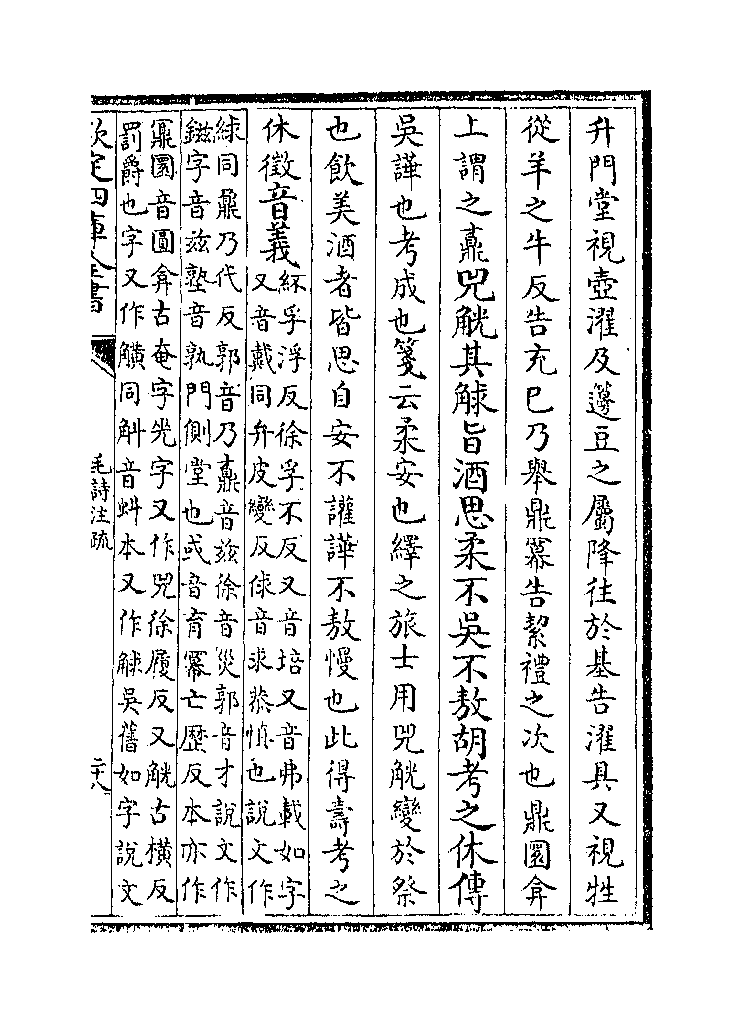 升門堂視壺濯及籩豆之屬降往於基告濯具又視牲
從羊之牛反告充已乃舉鼎冪告絜禮之次也鼎圜弇
上謂之鼒兕觥其觩旨酒思柔不吳不敖胡考之休傳
吳譁也考成也箋云柔安也繹之旅士用兕觥變於祭
也飲美酒者皆思自安不讙譁不敖慢也此得壽考之
休徵音義
紑孚浮反徐孚不反又音培又音弗載如字
又音戴同弁皮變反俅音求恭慎也說文作
絿同鼐乃代反郭音乃鼒音兹徐音災郭音才說文作
鎡字音兹塾音孰門側堂也或音育冪亡歷反本亦作
鼏圜音圓弇古奄字兕字又作兕徐履反又觥古橫反
罰爵也字又作觵同斛音虯本又作觩吳舊如字說文
欽定四庫全書
毛詩注疏
二十八